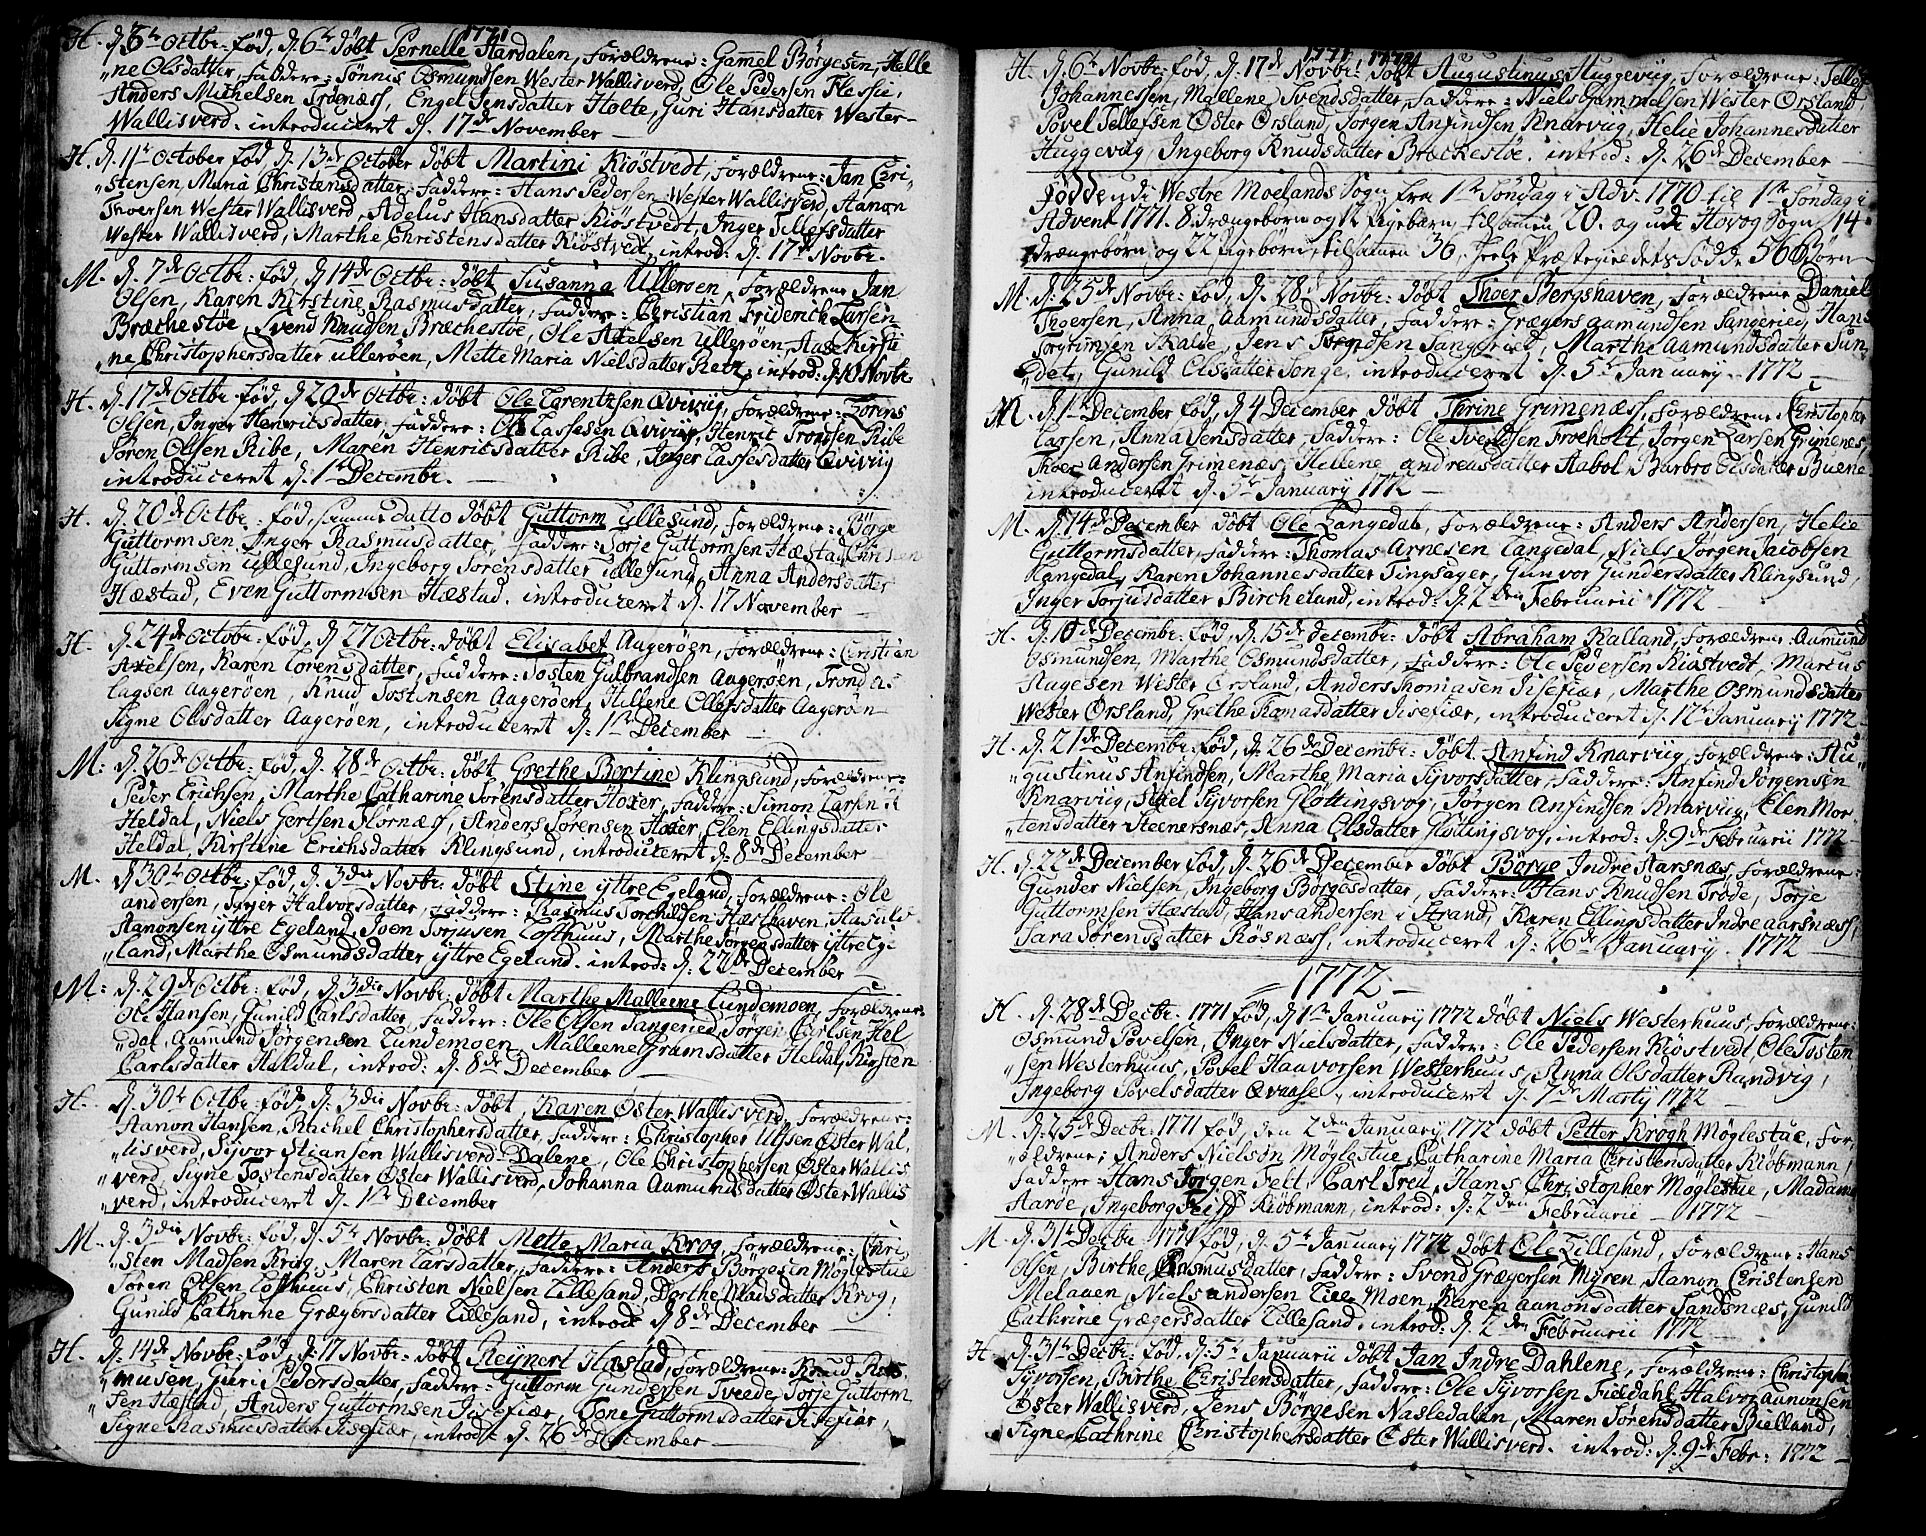 1771
H. d. 3de Octbr: fød, d. 6te døbt Pernelle Hardalen, Forældrene: Gamel Börgesen, Helle
"ne Olsdatter, Faddere: Tönnis Osmundsen Wester Wallisverd, Ole Pedersen
Anders Michelsen Tröenæss, Engel Jensdatter Holte, Guri Hansdatter Wester-
Wallisverd. introduceret d. 17de November —
H. d. 11te October fød, d. 13de October döbt Martini Kiöstvedt, Forældrene: Jan Chri-
"stensen, Maria Christensdatter, Faddere: Hans Pedersen Wester Wallisverd, Aanon
Thoersen Wester Wallisverd, Adelus Hansdatter Kiöstvedt, Inger Tellefsdatter
Wester Wallisverd, Marthe Christensdatter Kiöstvedt, introd: d. 17de Novbr.
M. d. 7de Octbr: fød, d. 14de Octbr: döbt Susanna Ulleröen, Forældrene Jan
Olsen, Karen Kirstine Rasmusdatter, Faddere: Christian Friderich Larsen
Bræchestöe, Svend Knudsen Bræchestöe, Ole Axelsen Ulleröen, Aase Kirsti
"ne Christophersdatter ulleröen, Mette Maria Nielsdatter introd: d. 10 Novbr
H. d. 17de Octbr fød, d. 20de Octbr: döbt Ole Lorentzsen Qviviig, Forældrene: Lorens
Olsen, Inger Henricsdatter, Faddere: Ole Lassesen Qviviig, Henric Trondsen Ribe
Sören Olsen Ribe, Maren Henricsdatter Ribe, Inger Lassesdatter Qviviig
introduceret d. 1te Decembr.
H. d. 20de Octbr: fød, samme datto döbt Guttorm Tillesund, Forældrene: Börge
Guttormsen, Inger Rasmusdatter, Faddere: Torje Guttormsen Hæstad, Christen
Guttormsen ullesund, Ingeborg Sörensdatter ullesund, Anna Andersdatter
Hæstad, Even Guttormsen Hæstad. introduceret d. 17 November —
H. d. 24de Octobr: fød, d. 27 Octbr: döbt Elisabet Aageröen, Forældrene: Christian
Axelsen, Karen Lorensdatter, Faddere: Tosten Gulbrandsen Aageröen, Trond As
lagsen Aageröen, Knud Tostensen Aageröen, Hellene Ellefsdatter Aageröen
Signe Olsdatter Aageröen, introduceret d. 1te December —
M: d. 26de Octbr. fød, d. 28de Octbr: döbt Grethe Bertine Klingsund, Forældrene:
Peder Erichsen, Marthe Catharine Sörensdatter Hoxer, Faddere: Simon Larsen
Heldal, Niels Gertsen Hornæss, Anders Sörensen Hoxer, Elen Ellingsdatter
Heldal, Kirstine Erichsdatter Klingsund, introduceret d. 8de December —
M. d. 30te Octbr: fød, d. 3die Novbr: döbt Stine yttre Egeland, Forældrene: Ole
andersen, Inger Halvorsdatter, Faddere: Rasmus Torchildsen Hæsthaven, Aasuld
Aanonsen yttre Egeland, Joen Torjusen Lofthuus, Marthe Jörgensdatter yttre Ege
land, Marthe Osmundsdatter yttre Egeland. introd: d. 22de December —
M: d. 29de Octbr: fød, d. 3die Novbr: döbt Marthe Malleene Lundemoen, Forældrene:
Ole Hansen, Gunild Carlsdatter, Faddere: Ole Olsen Sangeried, Jörgen Carlsen Hel
"dal, Aamund Jörgensen Lundemoen, Malleene Gramsdatter Heldal, Kirsten
Carlsdatter Heldal, introd: d. 8de December —
H. d. 30te Octbr: fød, d. 3die Novbr: döbt, Karen Öster Wallisverd, Forældrene:
Aanon Hansen, Rachel Christophersdatter, Faddere: Christopher Ulfsen Öster Wal,
"lisverd, Syvor Stiansen Wallisverd-Dalene, Ole Christophersen Öster Wallis
"verd, Signe Tostensdatter Öster Wallisverd, Johanna Aamundsdatter Öster Wallis
"verd, introduceret d. 1te December
M. d. 3die Novbr: fød, d. 5te Novbr: döbt Mette Maria Krog, Forældrene: Chri
"sten Madsen Krog, Maren Larsdatter, Faddere: Anders Börgesen Möglestue
Sören Olsen Lofthuus, Christen Nielsen Lillesand, Dorthe Madsdatter Krog,
Gunild Cathrine Grægersdatter Lillesand, introd: d 8de December —
H. d: 14de Novbr: fød, d. 17 Novbr: döbt Reynert Hæstad, Forældrene: Knud Ras
"musen, Guri Pedersdatter, Faddere: Guttorm Gundersen Tveede, Torje Guttorm
"sen Hæstad, Anders Guttormsen Jisefiær, Tone Guttormsdatter Jisefiær,
Signe Rasmusdatter Jisefiær, introd: d. 26de December —
1771 1772
H. d. 6te Novbr: fød, d. 17de Novbr: döbt Augustinus Huggeviig, Forældrene: Tellef
Johannessen, Mallene Svendsdatter, Faddere: Niels Gammelsen Wester Örsland
Povel Tellefsen Öster Örsland, Jörgen Anfindsen Knarviig, Helie Johannesdatter
Huggeviig, Ingeborg Knudsdatter Bræckestöe. introd: d. 26de December —
Födde udi Westre Moelands Sogn fra 1te Söndag i Adv. 1770 til 1te Söndag i
Advent 1771. 8 drængebørn og 12 Pigebørn, tilsammen 20. og udi Hövog Sogn 14
drængebørn og 22 Pigebørn, tilsamen 36, heele Præstegieldets Fødde 56 Börn—
M. d. 25de Novbr: fød, d. 28de Novbr: döbt Thoer Bergshaven, Forældrene Daniel
Thoersen, Anna Aamundsdatter, Faddere: Grægers aamundsen Sangeried, Hans
Torgrimsen Skalde, Jens Svendsen Sangeried, Marthe Aamundsdatter Sun,
"det, Gunild Olsdatter Songe, introduceret d. 5te January 1772 —
M. d. 1te December fød, d 4 December döbt Thrine Grimenæss, Forældrene: Christopher
Larsen, Anna Jensdatter, Faddere: Ole Svendsen Froeholt, Jörgen Larsen Grimenes,
Thoer Andersen Grimenæs, Hellene andreasdatter Aabol, Barbro Olsdatter Buene
introduceret d. 5te January 1772 —
M. d. 14de December döbt Ole Langedal, Forældrene: Anders Andersen, Helie
Guttormsdatter, Faddere: Thomas Arnesen Langedal, Niels Jörgen Jacobsen
Langedal, Karen Johannesdatter Tingsager, Gunvor Gundersdatter Klingsund,
Inger Torjusdatter Bircheland, introd: d. 2den Februarii 1772 —
H. d. 10de Decembr: fød, d. 15de decembr: döbt Abraham Kalland, Forældrene: Aamund
Osmundsen, Marthe Osmundsdatter, Faddere: Ole Pedersen Kiöstvedt, Marcus
Aagesen Wester Örsland, Anders Thomasen Jisefiær, Marthe Osmundsdatter
Wester Örsland, Grethe Tomasdatter Jisefiær, introduceret d. 12te Januarij 1772 —
H. d. 21de Decembr: fød, d. 26de Decembr: döbt Anfind Knarviig, Forældrene: Au
"gustinus Anfindsen, Marthe Maria Syvorsdatter, Faddere: Anfind Jörgensen
Knarviig, Syvorsen Glöttingsvog, Jörgen Anfindsen Knarviig, Elen Mor
"tensdatter Steenersnæs, Anna Olsdatter Glötingsvog, introd: d. 9de Februarii 1772 —
H. d. 22de December fød, d. 26de December döbt Börge Indre Aarsnæs, Forældrene:
Gunder Nielsen, Ingeborg Börgesdatter, Faddere: Hans Knudsen Tröde, Torje
Guttormsen Hæstad, Hans andersen i Strand, Karen Ellingsdatter Indre aarsnæss,
Sara Sörensdatter Rösnæss, introduceret d. 26de Januarij. 1772 —
1772 —
H. d. 28de Decbr. 1771 fød, d 1te Januarij 1772 döbt Niels Westerhuus, Forældrene:
Osmund Povelsen, Inger Nielsdatter, Faddere: Ole Pedersen Kiöstvedt, Ole Tosten
"sen Westerhuus, Povel Haavorsen Westerhuus, Anna Olsdatter Randvig,
Ingeborg Povelsdatter Qvaase, introduceret d. 7de Martij 1772 —
M. d. 25de Decbr: 1771 fød, den 2den Januarij 1772 döbt Petter Krogh Möglestue, For,
"ældrene: Anders Nielsön Möglestue, Catharine Maria Christensdatter Kiöbmann,
Faddere: Hans Jörgen Fett, Carl Treu, Hans Christopher Möglestue, Madame
Aaröe, Ingeborg Kiöbmann, introd: d. 2den Februarii — 1772 —
M. d. 31te Decbr 1771 fød, d. 5te Januarij 1772 döbt Ole Lillesand, Forældrene: Hans
Olsen, Birthe Rasmusdatter, Faddere: Svend Grægersen Myren, Aanon Christensen
Melaaen, Niels andersen Lille Moen, Karen aanonsdatter Sandsnæs, Gunild
Cathrine Grægersdatter Lillesand. introd: d. 2den Februarii 1772 —
H. d. 31te Decbr: fød, d. 5te Januarii döbt Jan Indre Dahlene, Forældrene: Christopher
Syvorsen, Birthe Christensdatter, Faddere: Ole Syvorsen Fieldahl, Halvor aanonsen
Öster Wallisverd, Jens Börgesen Nasledalen, Maren Sörensdatter Bielland,
Signe Cathrine Christophersdatter Öster Wallisverd. introd: d. 9de Febr: 1772 —